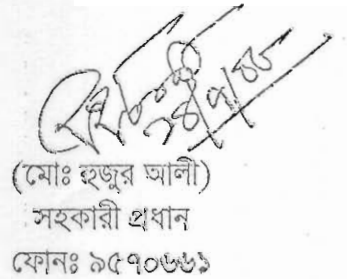 (মোঃ হুজুর আলী)
সহকারী প্রধান
ফোনঃ ৯৫৭০৬৬১